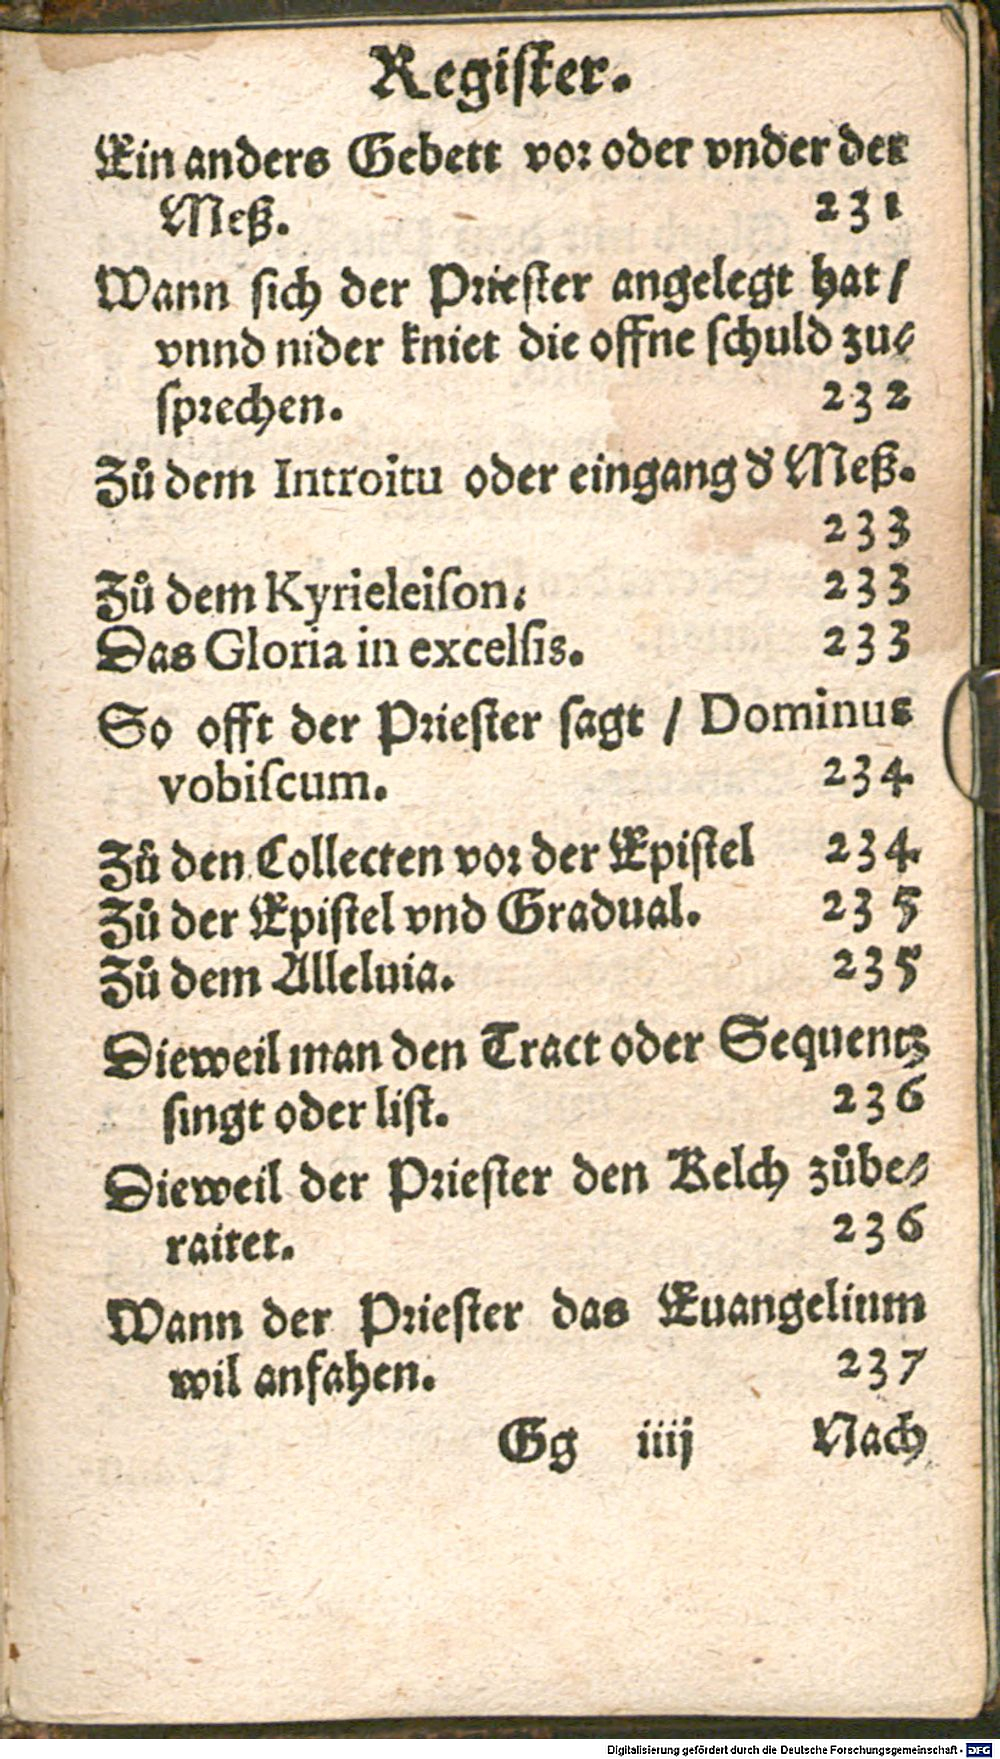 Regiſter.
Ein anders Gebett vor oder vnder der
Meß. 231
Wann ſich der Prieſter angelegt hat/
vnnd nider kniet die offne ſchuld zu⸗
ſprechen. 232
Zů dem Introitu oder eingang d' Meß.
233
Zů dem Kyrieleiſon. 233
Das Gloria in excelſis. 233
So offt der Prieſter ſagt / Dominus
vobiſcum. 234
Zů den Collecten vor der Epiſtel 234
Zů der Epiſtel vnd Gradual. 235
Zů dem Alleluia. 235
Dieweil man den Tract oder Sequentz
ſingt oder liſt. 236
Dieweil der Prieſter den Kelch zůbe⸗
raitet. 236
Wann der Prieſter das Euangelium
wil anfahen. 237
Gg iiij Nach
Digitalisierung gefördert durch die Deutsche Forschungsgemeinschaft - DFG